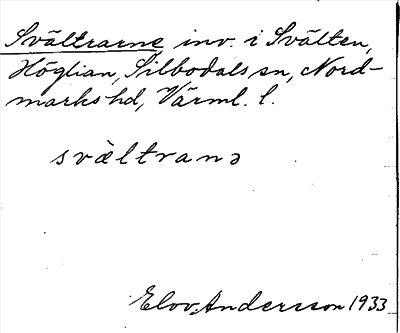 Svältrarne, inv. i Svälten,
Höglian, Silbodals sn, Nord-
marks hd, Värml. l.
svältranə
Elov. Andersson 1933